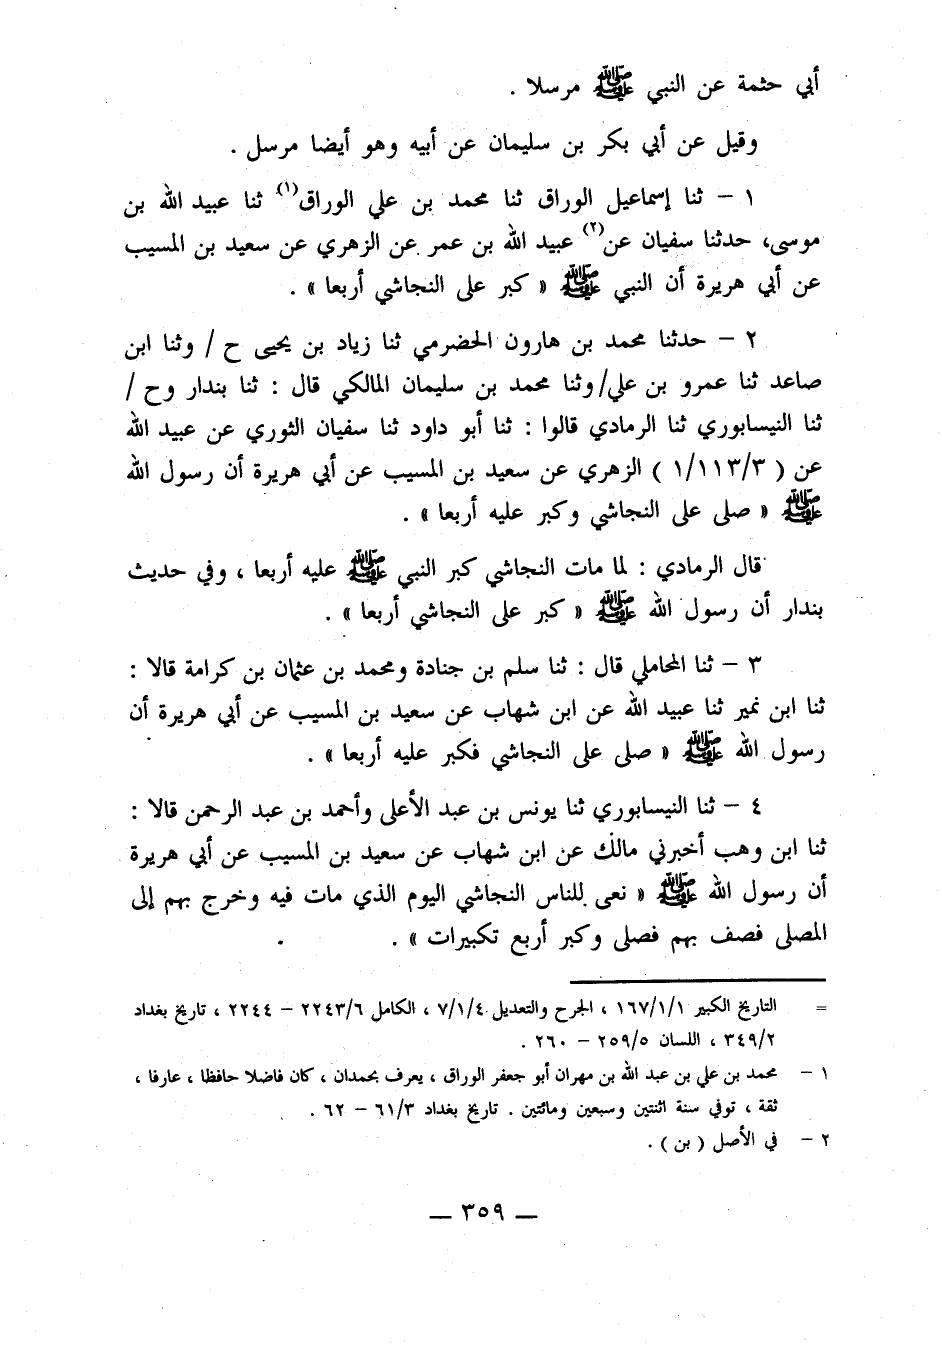 أبي حثمة عن النبي ﷺ مرسلا .
وقيل عن أبي بكر بن سليمان عن أبيه وهو أيضا مرسل .
١ – ثنا إسماعيل الوراق ثنا محمد بن علي الوراق(١) ثنا عبيد الله بن
موسى، حدثنا سفيان عن(٢) عبيد الله بن عمر عن الزهري عن سعيد بن المسيب
عن أبي هريرة أن النبي ﷺ « كبر على النجاشي أربعا » .
٢ – حدثنا محمد بن هارون الحضرمي ثنا زياد بن يحيى ح / وثنا ابن
صاعد ثنا عمرو بن علي/ وثنا محمد بن سليمان المالكي قال : ثنا بندار وح /
ثنا النيسابوري ثنا الرمادي قالوا : ثنا أبو داود ثنا سفيان الثوري عن عبيد الله
عن ( ١/١١٣/٣ ) الزهري عن سعيد بن المسيب عن أبي هريرة أن رسول الله
ﷺ « صلى على النجاشي وكبر عليه أربعا » .
قال الرمادي : لما مات النجاشي كبر النبي ﷺ عليه أربعا ، وفي حديث
بندار أن رسول الله ﷺ « كبر على النجاشي أربعا » .
٣ – ثنا المحاملي قال : ثنا سلم بن جنادة ومحمد بن عثمان بن كرامة قالا :
ثنا ابن نمير ثنا عبيد الله عن ابن شهاب عن سعيد بن المسيب عن أبي هريرة أن
رسول الله ﷺ « صلى على النجاشي فكبر عليه أربعا » .
٤ – ثنا النيسابوري ثنا يونس بن عبد الأعلى وأحمد بن عبد الرحمن قالا :
ثنا ابن وهب أخبرني مالك عن ابن شهاب عن سعيد بن المسيب عن أبي هريرة
أن رسول الله ﷺ « نعى للناس النجاشي اليوم الذي مات فيه وخرج بهم إلى
المصلى فصف بهم فصلى وكبر أربع تكبيرات » .
= التاريخ الكبير ١٦٧/١/١ ، الجرح والتعديل ٧/١/٤ ، الكامل ٢٢٤٣/٦ – ٢٢٤٤ ، تاريخ بغداد
٣٤٩/٢ ، اللسان ٢٥٩/٥ – ٢٦٠ .
١ – محمد بن علي بن عبد الله بن مهران أبو جعفر الوراق ، يعرف بحمدان ، كان فاضلا حافظا ، عارفا ،
ثقة ، توفي سنة اثنتين وسبعين ومائتين . تاريخ بغداد ٦١/٣ – ٦٢ .
٢ – في الأصل ( بن ) .
— ٣٥٩ —